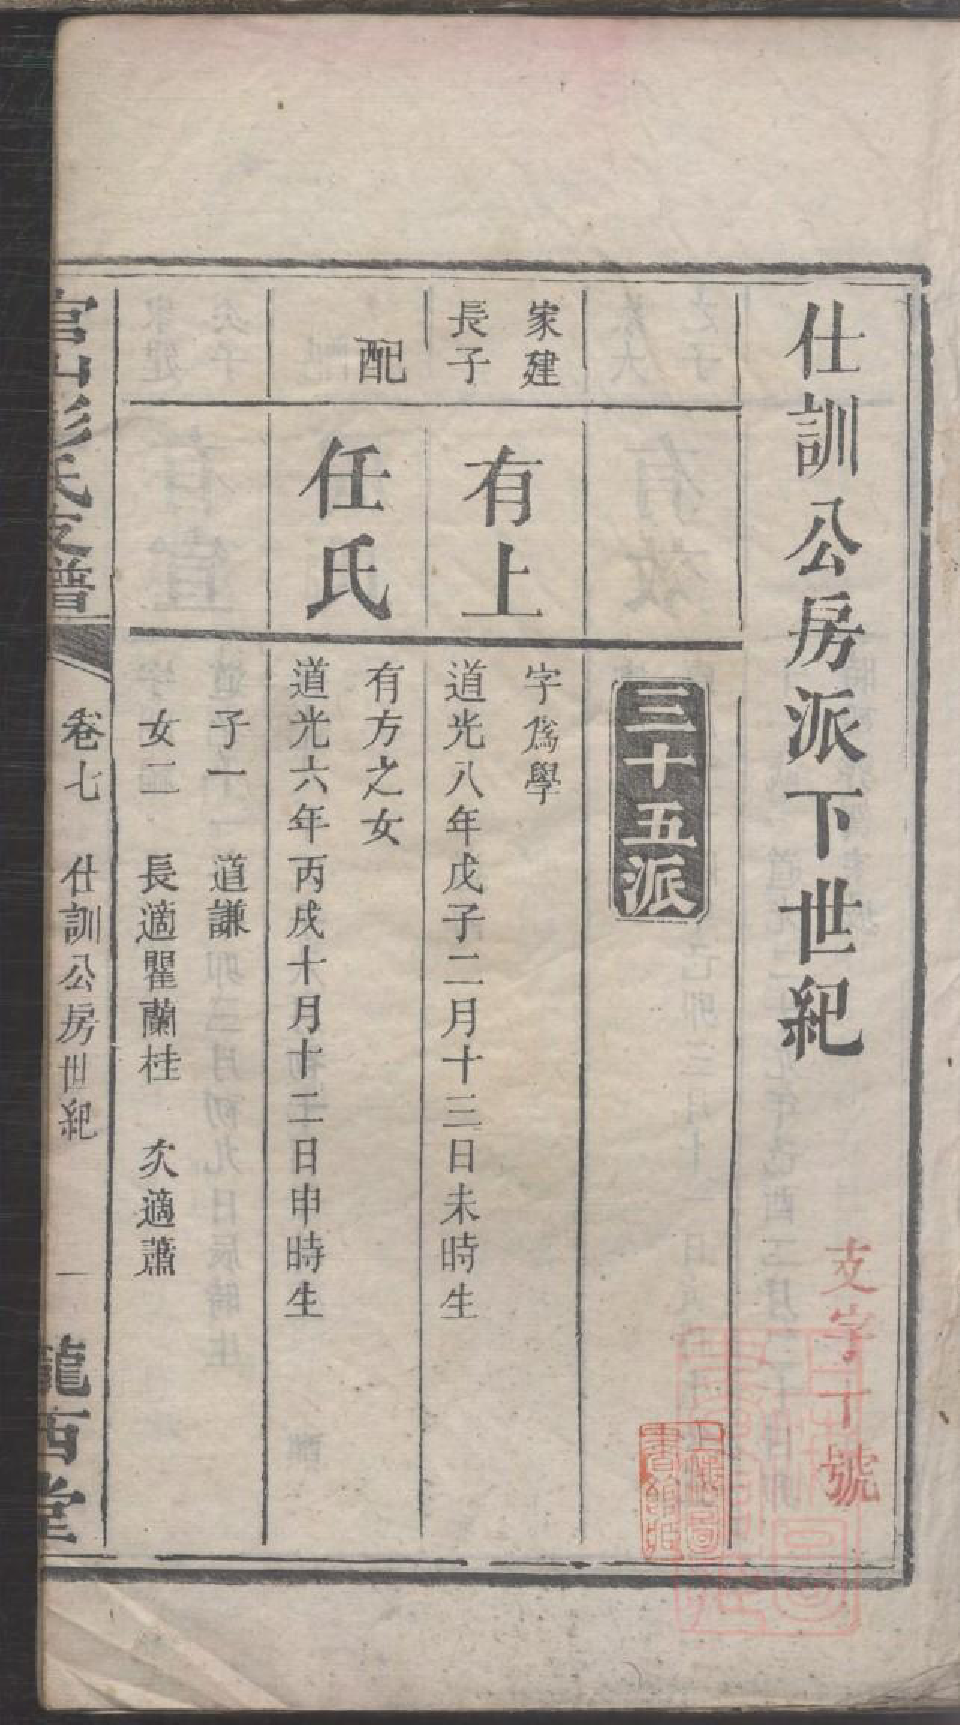 仕訓公房派下世紀
支字丁號
三十五派
家建
長子
有上
字爲學
道光八年戊子二月十三日未時生
配
任氏
有方之女
道光六年丙戌十月十二日申時生
子一 道謙
女二 長適瞿蘭桂 次適蕭
官山彭氏支譜 卷七 仕訓公房世紀 一 隴西堂
上海圖書館藏